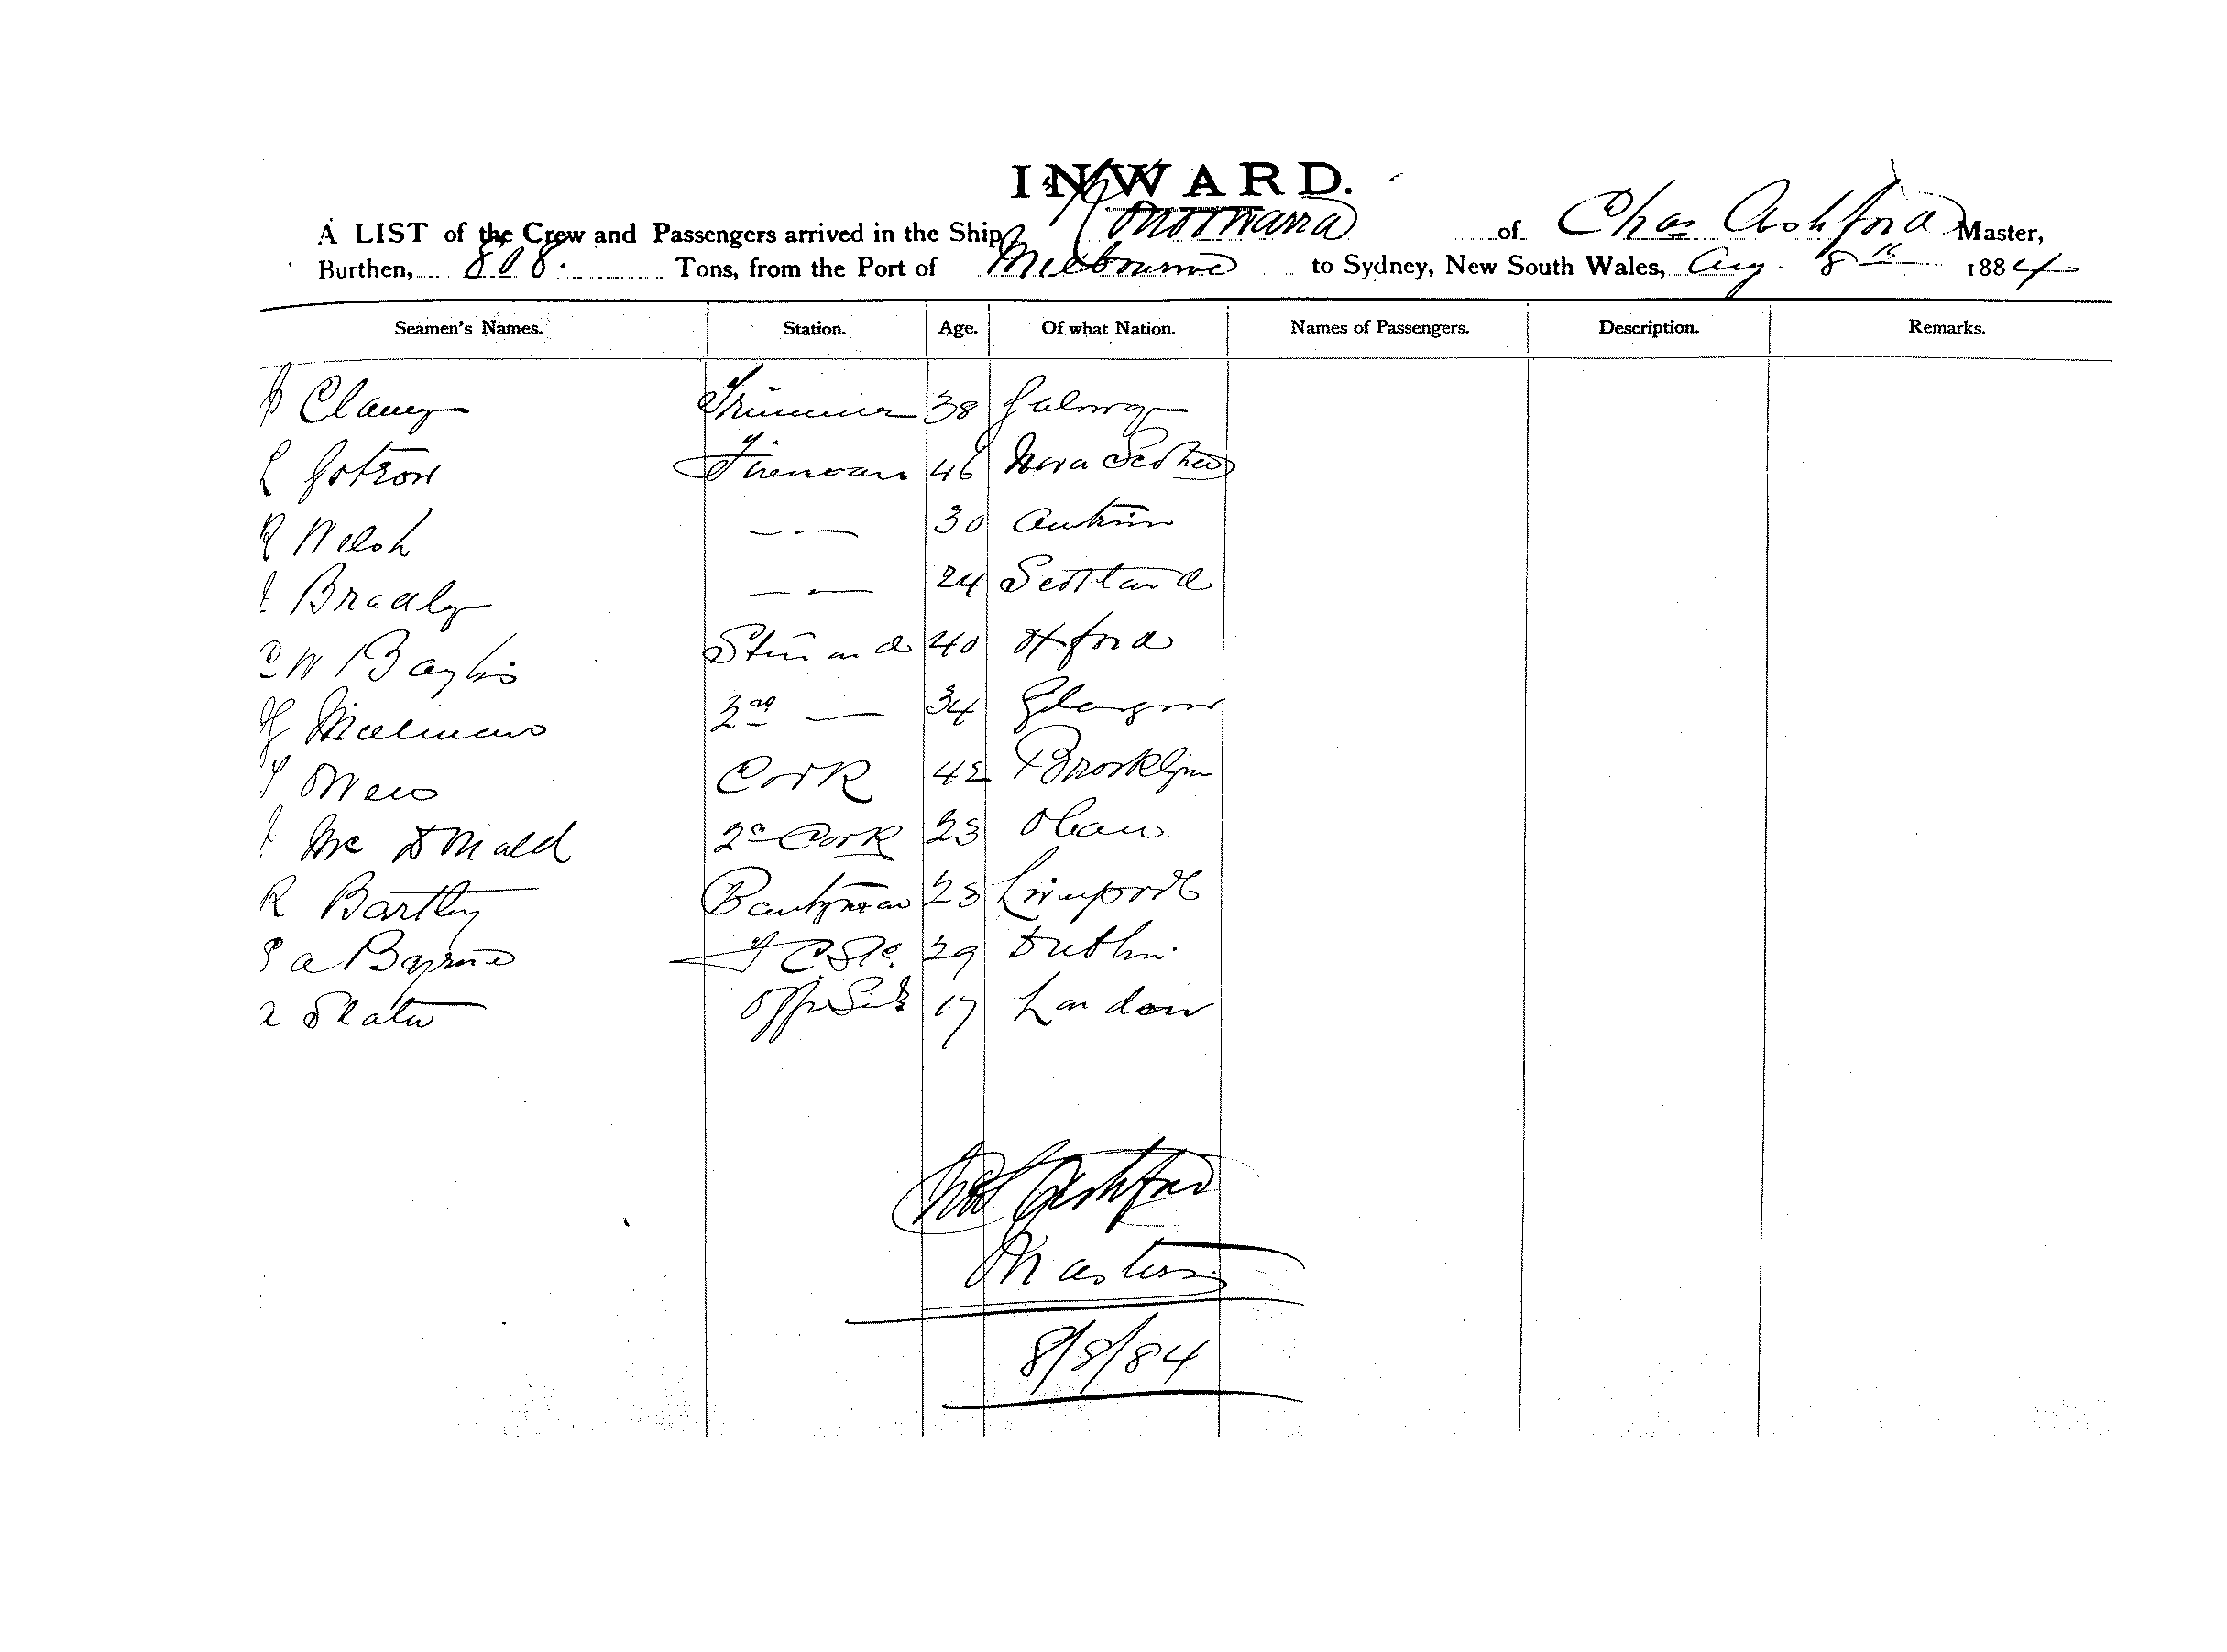 INWARD.
A LIST of the Crew and Passengers arrived in the Ship Konoowarra of Chas Ashford Master,
Burthen, 808. Tons, from the Port of Melbourne to Sydney, New South Wales, Aug. 8th 1884
Seamen's Names. Station. Age. Of what Nation. Names of Passengers. Description. Remarks.
Clancy Trimmer 38 Galway
Fireman 46 Nova Scotia
Welsh — — 30 Antrim
Bradly — — 24 Scotland
W Baylis Steward 40 Oxford
2nd — 34 Glasgow
Owens Cook 42 Brooklyn
Mc Donald 2nd Cook 23 Oban
R Bartley Pantryman 23 Liverpool
a Byrne 29 Dublin
Slater 17 London
Chas Ashford
Master
8/8/84